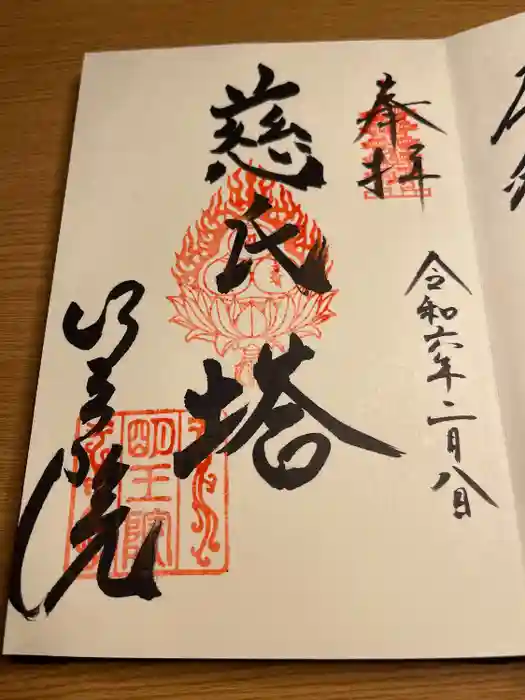 奉拝
令和六年二月八日
慈氏塔
明王院
明王院